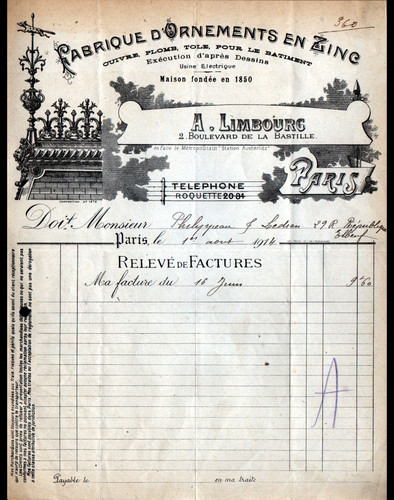 360
FABRIQUE D'ORNEMENTS EN ZINC
CUIVRE, PLOMB, TOLE, POUR LE BATIMENT
Exécution d'après Dessins
Usine Electrique
Maison fondée en 1850
A. LIMBOURG
2. BOULEVARD DE LA BASTILLE.
en face le Métropolitain "Station Austerlitz"
PARIS
TELEPHONE
ROQUETTE 20-84
Doit Monsieur 29 R. République
Paris, le 1er août 1914
RELEVÉ DE FACTURES
Ma facture du 16 Juin 9"60
A
Payable le en ma traite